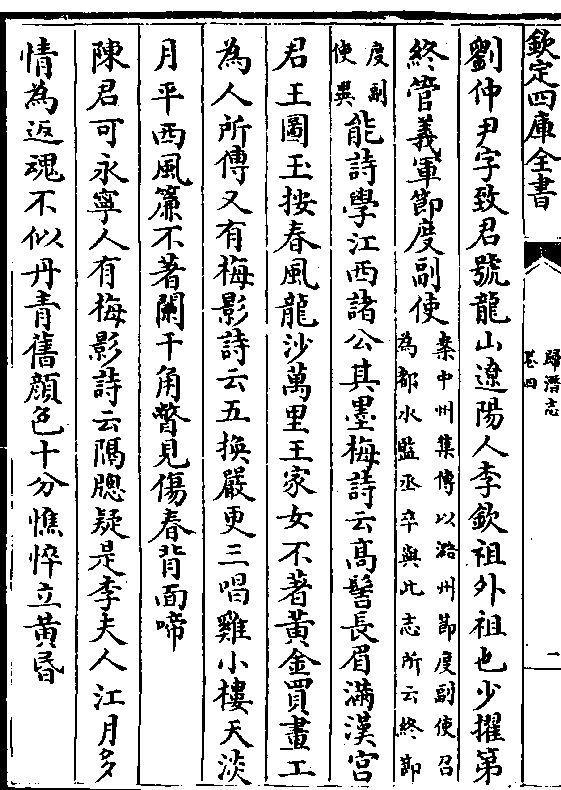 欽定四庫全書
歸潛志
卷四
二
劉仲尹字致君號龍山遼陽人李欽祖外祖也少擢第
終管義軍節度副使案中州集傳以潞州節度副使召
為都水監丞卒與此志所云終節
度副
使異能詩學江西諸公其墨梅詩云髙髻長眉滿漢宮
君王圖玉按春風龍沙萬里王家女不著黄金買畫工
為人所傳又有梅影詩云五換嚴更三唱雞小樓天淡
月平西風簾不著闌干角瞥見傷春背面啼
陳君可永寧人有梅影詩云隔牕疑是李夫人江月多
情為返魂不似丹青舊顔色十分憔悴立黄昏